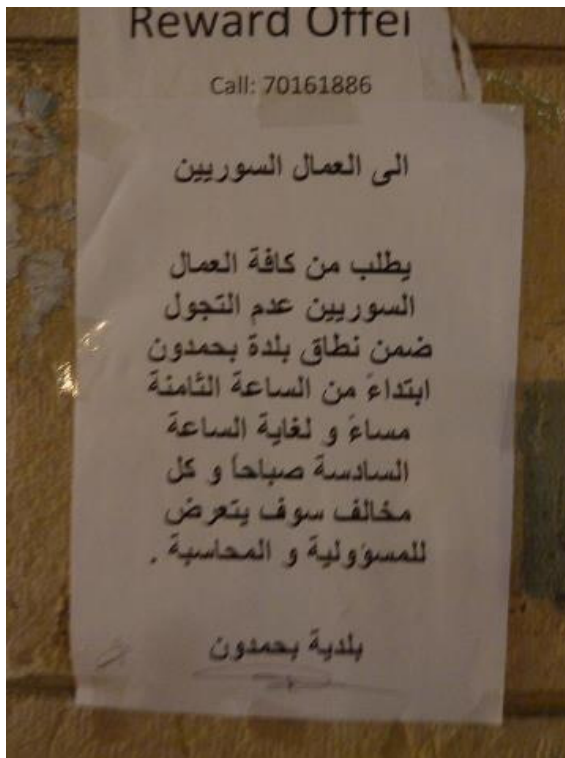 Reward Offer
Call: 70161886
الى العمال السوريين
يطلب من كافة العمال
السوريين عدم التجول
ضمن نطاق بلدة بحمدون
ابتداءً من الساعة الثامنة
مساءً و لغاية الساعة
السادسة صباحاً و كل
مخالف سوف يتعرض
للمسؤولية و المحاسبة .
بلدية بحمدون